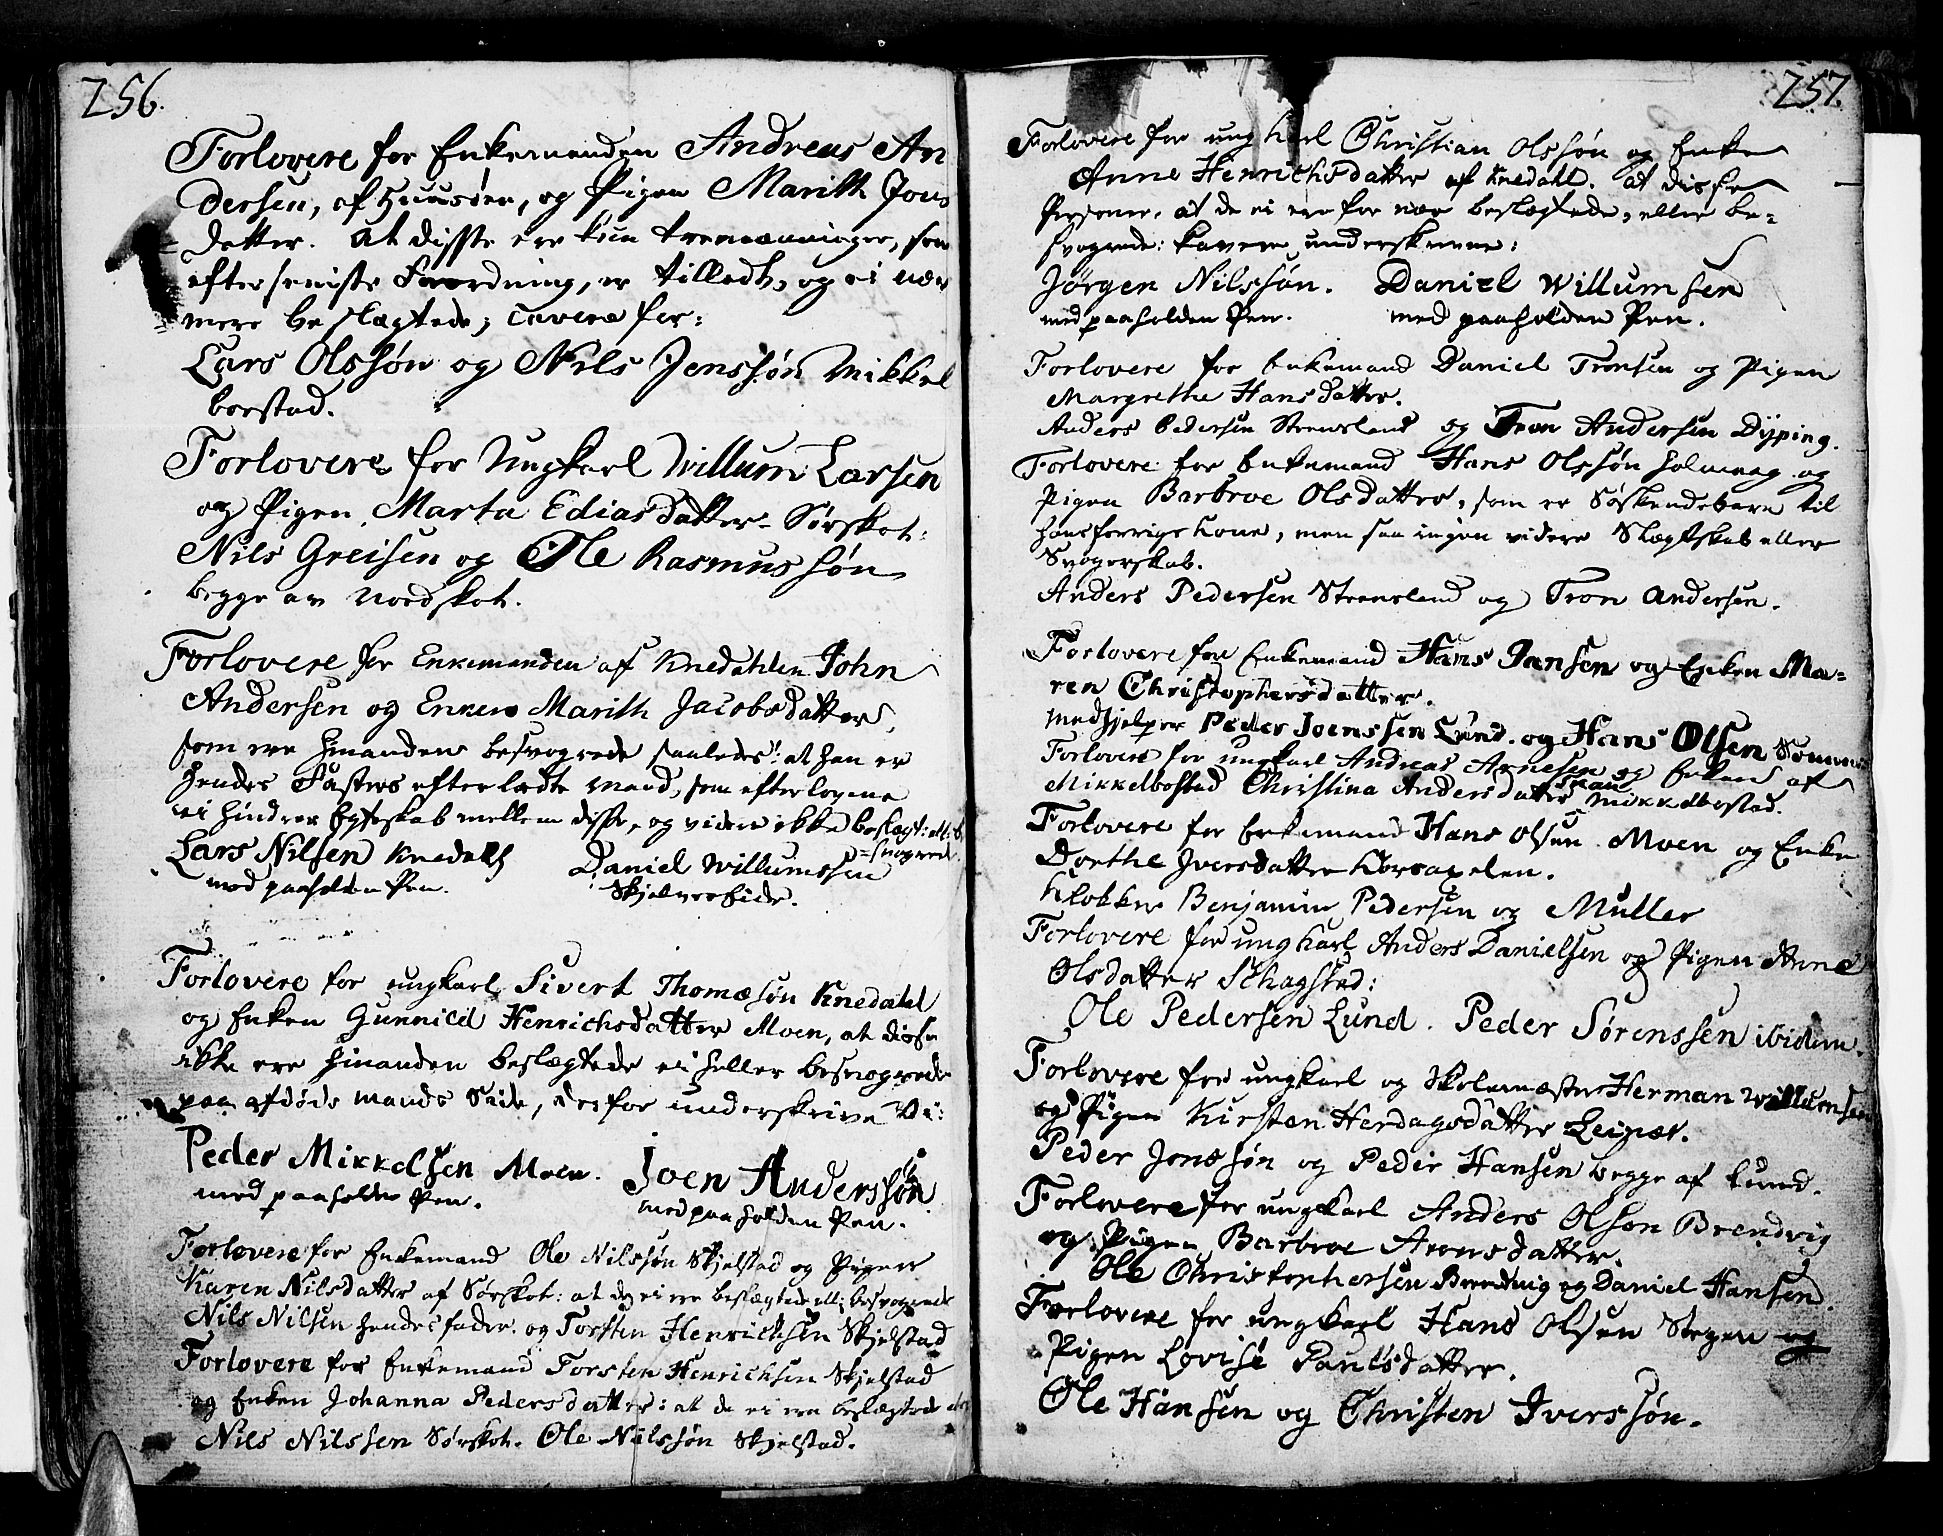 256.
Forlovere for Enkemanden Andreas An
dersen, af Huusøen, og Pigen Marith Jons
datter. at disse ere kun tremænninger, som
efter seniste Forordning, er tilladt, og ei nær
mere beslægtede; cavere for:
Lars Olssøn og Nils Jenssøn Mikkel
borstad.
Forlovere for Ungkarl Willum Larsen
og Pigen Marta Ediasdatter Sørskot:
Nils Greisen og Ole Rasmussøn
begge av Nordskot.
Forlovere for Enkemanden af Knedahlen John
Andersen og Enken Marith Jacobsdatter,
som ere hinanden besvogrede saaledes: at han er
hendes Fasters efterladte Mand, som efter lovene
ei hindrer Egteskab mellem disse, og videre ikke beslægt: ell: be
=svogrede
Lars Nilsen Knedahl Daniel Willumssen
med paaholden Pen. Skjelverseide.
Forlovere for ungkarl Sivert Thomæsøn Knedahl
og Enken Gunnild Henrichsdatter Moen, at disse
ikke ere hinanden beslægtede ei heller besvogrede
paa afdøde Mands Side, derfor underskrive Vi:
Peder Mikkelsen Moen. Joen Anderssøn
med paaholden Pen. med paaholden Pen.
Forlovere for Enkemand Ole Nilssøn Skjelstad og Pigen
Karen Nilsdatter af Sørskot: at de ei ere beslægtede ell: besvogrede
Nils Nilsen hendes fader. og Torsten Henrichsen Skjelstad
Forlovere for Enkemand Torsten Henrichsen Skjelstad
og Enken Johanna Pedersdatter: at de ei ere beslægtede
Nils Nilssen Sørskot. Ole Nilssøn Skjelstad.
257.
Forlovere for ung karl Christian Olssøn og Enke
Anne Henrichsdatter af Knedahl. at disse
Personer, at de ei ere for nær beslægtede, eller be=
svogrede: kavere underskrevne:
Jørgen Nilssøn. Daniel Willumsen
med paaholden Pen. med paaholden Pen.
Forlovere for Enkemand Daniel Tronsen og Pigen
Margrethe Hansdatter.
Anders Pedersen Strensland og Tron Andersen Dyping.
Forlovere for Enkemand Hans Olssøn Holmaag og
Pigen Barbroe Olsdatter, som er Søskendebarn til
hans forrige Kone, men saa ingen videre Slægtskab eller
Svogerskab.
Anders Pedersen Strensland og Tron Andersen.
Forlovere for Enkemand Hans Jansen og Enken Ma=
ren Christophersdatter.
Medhjelper Peder Joenssen Lund. og Hans Olsen
Forlovere for ungkarl Andreas Arnesen og Enken af
Mikkelbostad Christina Andersdatter Mikkelbostad.
Forlovere for Enkemand Hans Olsen Moen og Enke
Dorthe Iversdatter
Klokker Benjamin Pedersen og Muller
Forlovere for ungkarl Anders Danielsen og Pigen Anne
Olsdatter Schagstad:
Ole Pedersen Lund. Peder Sørenssen ibidem.
Forlovere for ungkarl og Skolemester Herman Willumsen
og Pigen Kirsten Herdagsdatter Leinæs.
Peder Jonssøn og Peder Hansen begge af Lund.
Forlovere for ungkarl Anders Olson Brendvig
og Pigen Barbroe Aronsdatter.
Ole Christophersen Brendvig og Daniel Hansen.
Forlovere for ungkarl Hans Olsen Stegen og
Pigen Lovise Paulsdatter.
Ole Hansen og Christen Iverssøn.